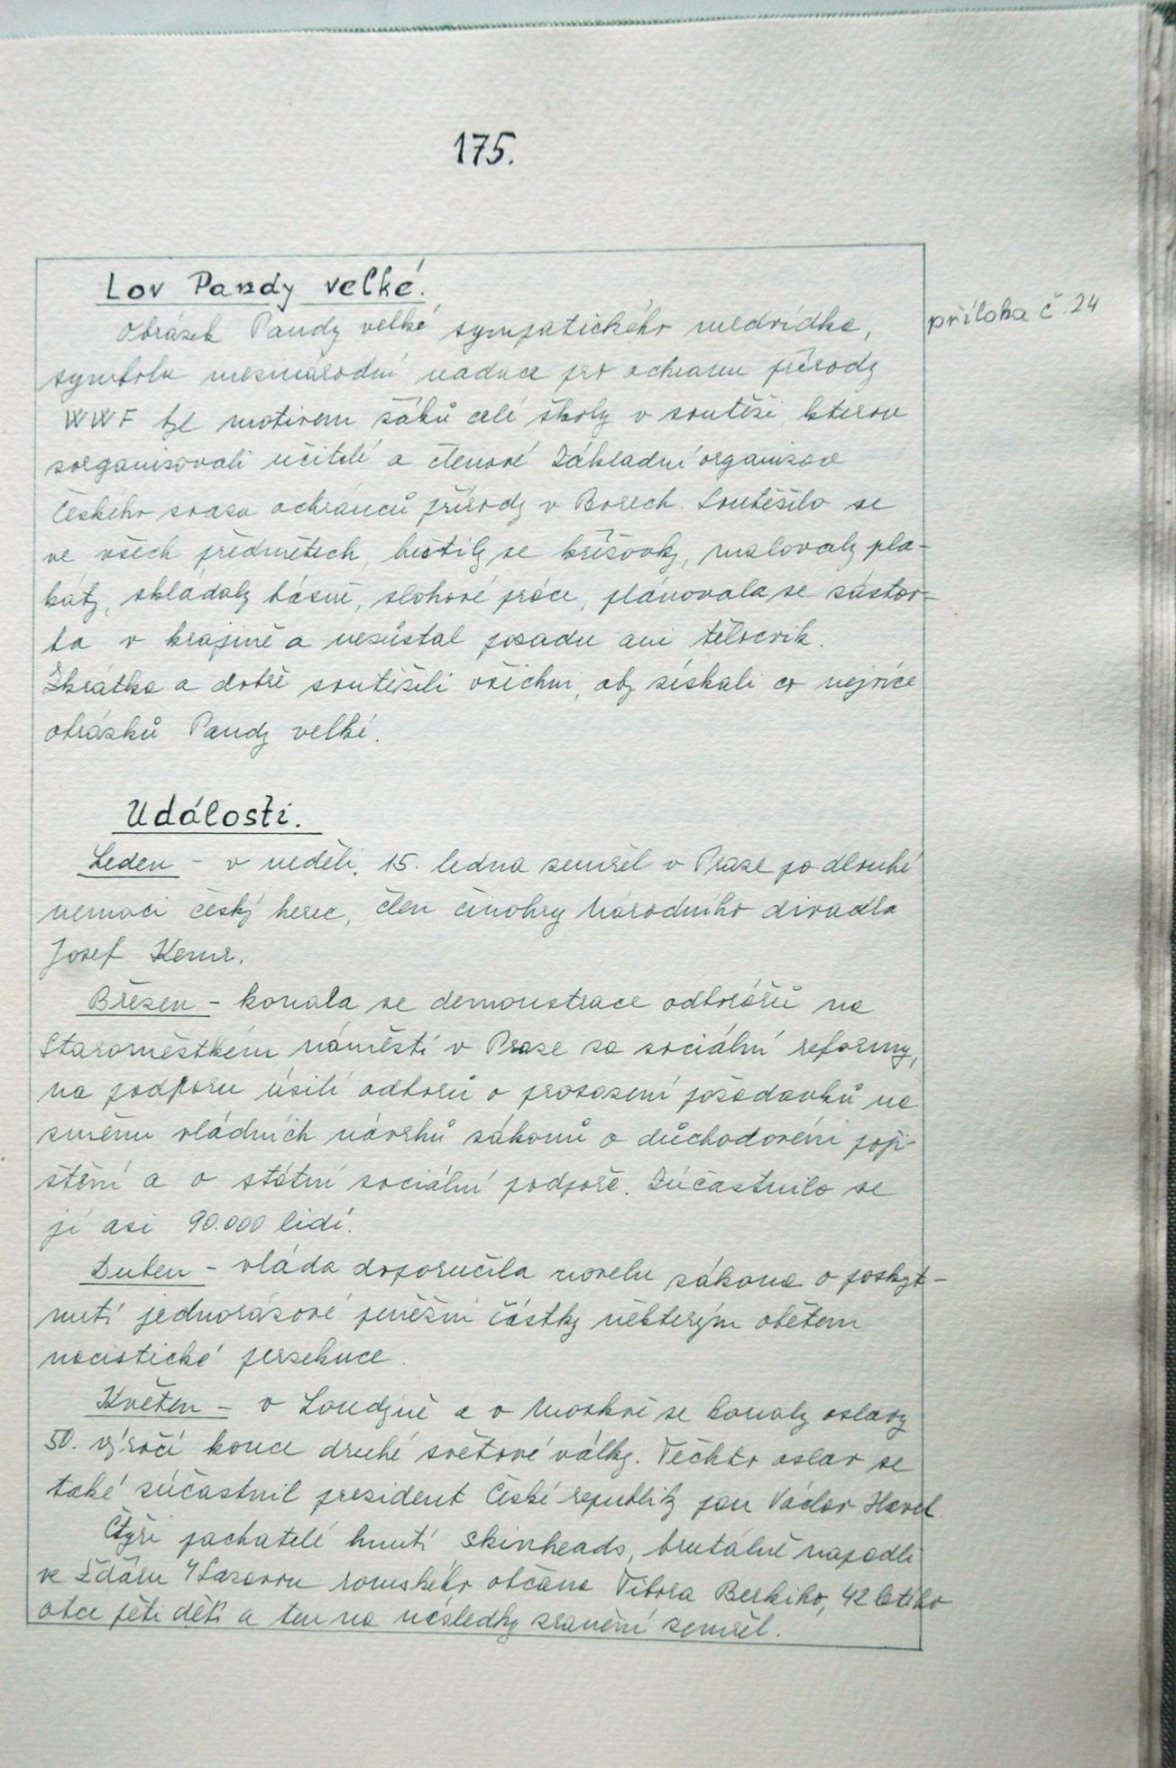 175.
Lov Pandy velké.
příloha č. 24
Obrázek Pandy velké sympatického medvídka,
symbolu mezinárodní nadace pro ochranu přírody
WWF byl motivem žáků celé školy v soutěži, kterou
zorganizovali učitelé a členové Základní organizace
Českého svazu ochránců přírody v Borech. Soutěžilo se
ve všech předmětech, luštily se křížovky, malovaly pla-
káty, skládaly básně, slohové práce, plánovala se zástav-
ba v krajině a nezůstal pozadu ani tělocvik.
Zkrátka a dobře soutěžili všichni, aby získali co nejvíce
obrázků Pandy velké.
Události.
Leden - v neděli, 15. ledna zemřel v Praze po dlouhé
nemoci český herec, člen činohry Národního divadla
Josef Kemr.
Březen - konala se demonstrace odborářů na
Staroměstkém náměstí v Praze za sociální reformy,
na podporu úsilí odborů o prosazení požadavků na
změnu vládních návrhů zákonů o důchodovém poji-
štění a o státní sociální podpoře. Zúčastnilo se
jí asi 90.000 lidí.
Duben - vláda doporučila novelu zákona o poskyt-
nutí jednorázové peněžní částky některým obětem
nacistické persekuce.
Květen - v Londýně a v Moskvě se konaly oslavy
50. výročí konce druhé světové války. Těchto oslav se
také zúčastnil president České republiky pan Václav Havel
Čtyři pachatelé hnutí Skinheads, brutálně napadli
ve Žďáru n/Sázavou romského občana Tibora Berkiho, 42 letého
otce pěti dětí a ten na následky zranění zemřel.